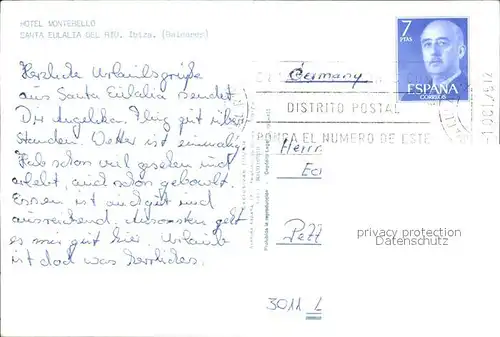 HOTEL MONTEBELLO
SANTA EULALIA DEL RIO. Ibiza. (Baleares)
Herzliche Urlaubsgrüße
aus Santa Eulalia sendet
Dir Angelika. Flug gut über-
standen. Wetter ist einmalig.
Hab schon viel gesehen und
erlebt, auch schon gebowlt.
Essen ist auch gut und
ausreichend. Ansonsten geht
es mir gut hier. Urlaub
ist doch was herrliches.
7
PTAS
ESPAÑA
CORREOS
Germany
DISTRITO POSTAL
PONGA EL NUMERO DE ESTE
-1 OCT 75
Herrn
Pett
3011 L
privacy protection
Datenschutz